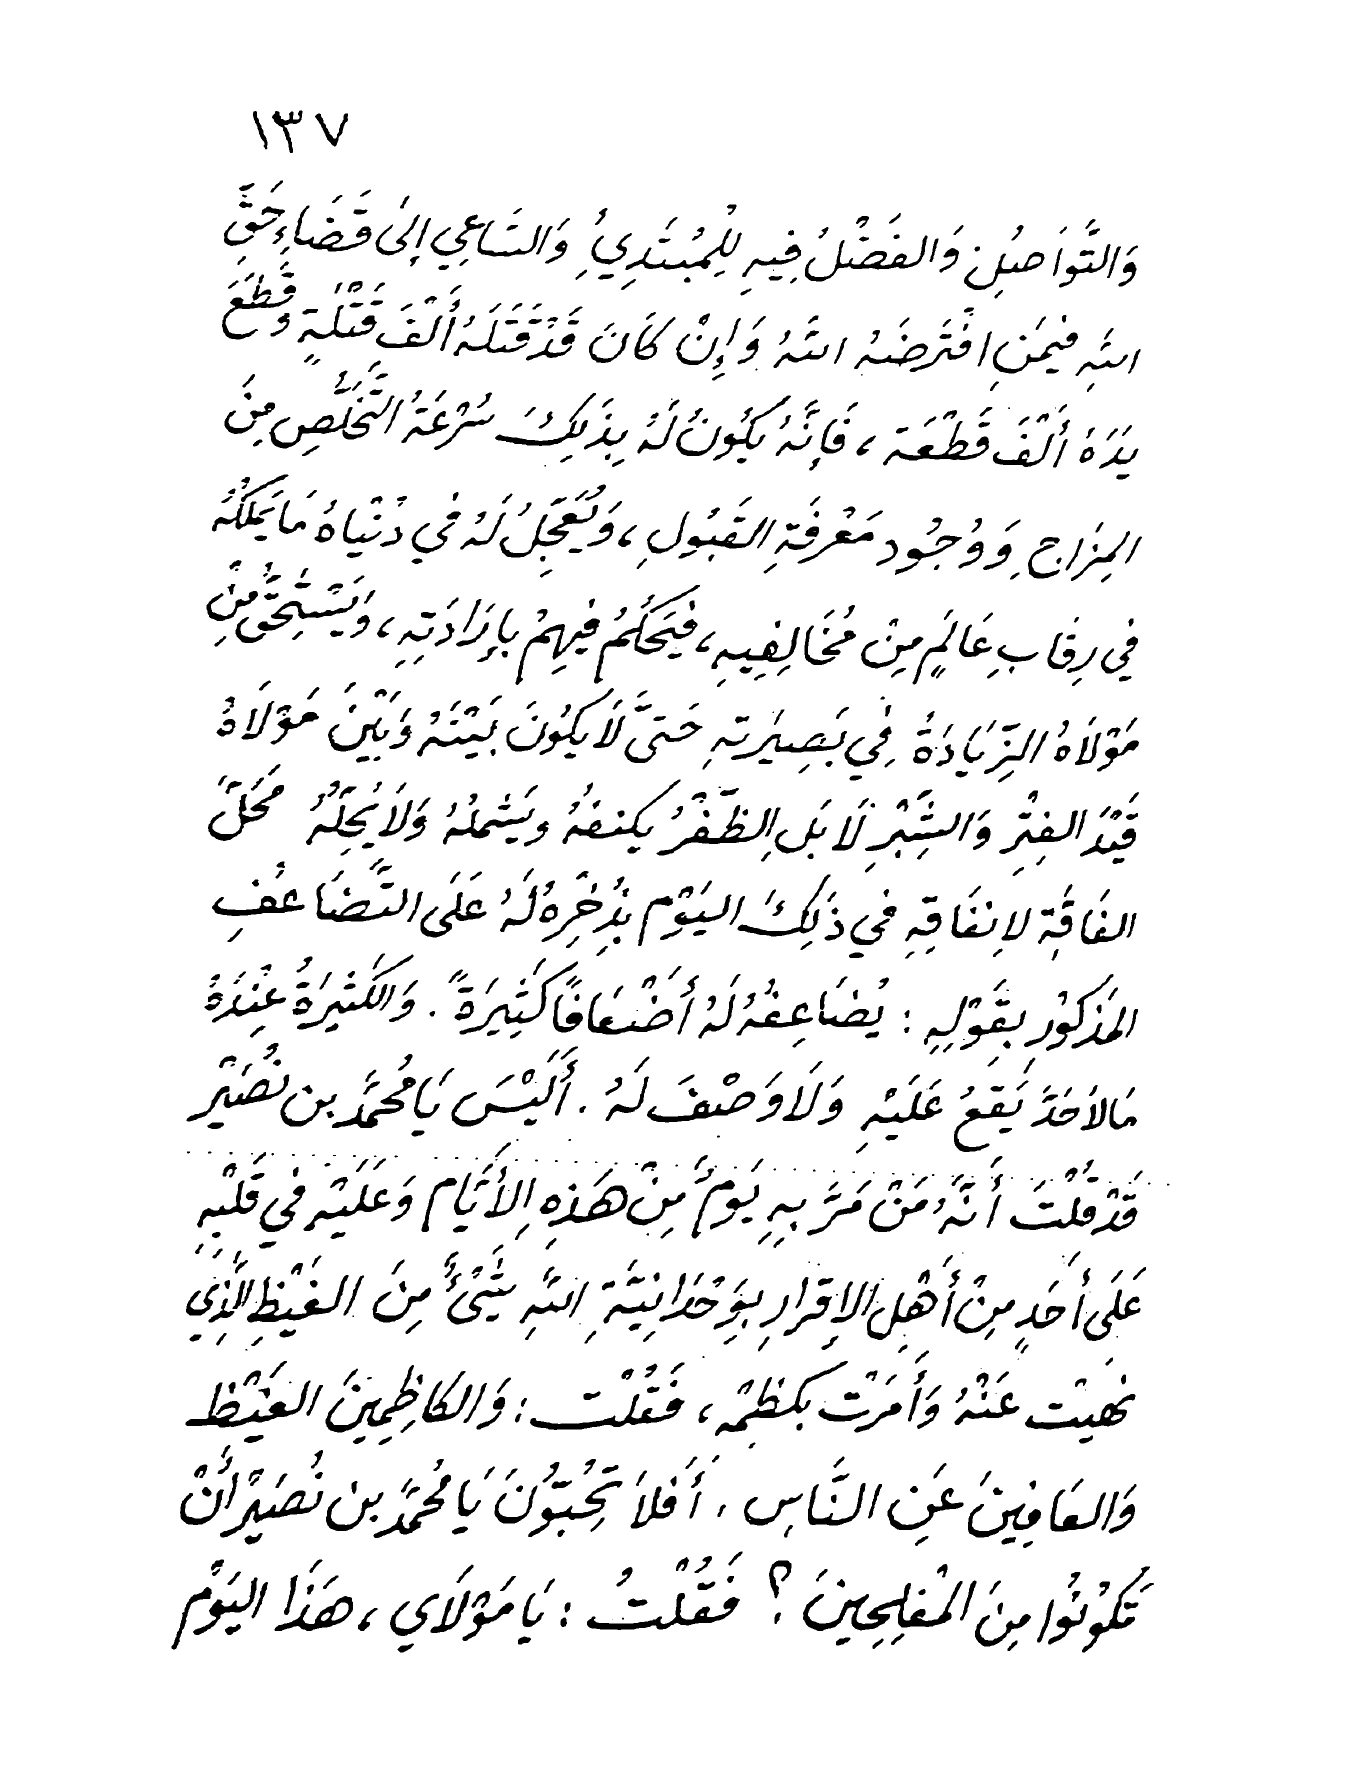 ١٣٧
وَالتَّوَاصُلِ وَالفَضْلُ فِيهِ لِلْمُبْتَدِيُّ وَالسَاعِي إِلَى قَضَاءِ حَقِّ
اللهِ فِيمَنِ افْتَرَضَهُ اللهُ وَإِنْ كَانَ قَدْ قَتَلَهُ أَلْفَ قَتْلَةٍ وَقَطَعَ
يَدَهُ أَلْفَ قَطْعَة ، فَإِنَّهُ يَكُونُ لَهُ بِذَلِكَ سُرْعَةُ التَّخَلُّصِ مِنَ
المِزَاجِ وَوُجُود مَعْرفَةِ القَبُولِ ، وَيُعَجِّلُ لَهُ في دُنْيَاهُ مَا يَمْلِكُهُ
فِي رِقَابِ عَالَمٍ مِنْ مُخَالِفِيهِ ، فَيَحكُمُ فِيهِمْ بِإِرَادَتِهِ ، وَيَسْتَحِقُّ مِنْ
مَوْلاَهُ الزِّيَادَةُ فِي بَصِيرَتهِ حَتىَّ لاَ يَكُونَ بَيْنَهُ وَبَيْنَ مَوْلاَهُ
قَيْدَ الفِتْرِ وَالشِّبْرِ لاَ بَل الظَّفْرُ يكنفهُ ويَشْملهُ وَلاَ يُحِلَّهُ مَحَلَّ
الفَاقَةِ لاِنفَاقِهِ في ذَلِكَ اليَوْمِ يَذْخِرهُ لَهُ عَلَى التَّضَاعُفِ
المَذكُوْرِ بِقَوْلِهِ : يُضَاعِفهُ لَهُ أَضْعَافًا كَثِيرَةً . وَالكَثِيرَةُ عِنْدَهُ
مَا لاَحَدَّ يَقَعُ عَلَيْهِ وَلاَ وَصْفَ لَهُ . أَلَيْسَ يَا مُحمَّد بن نُصَيْر
قَدْ قُلْتَ أَنَّهُ مَنْ مَرَّ بِهِ يَومٌ مِنْ هَذِهِ الأَيَّام وَعَلَيْهِ في قَلْبِهِ
عَلَى أَحَدٍ مِنْ أَهْلِ الإِقرَارِ بِوَحْدَانِيَّةِ اللهِ شَيْئٌ مِنَ الغَيْظِ الَّذِي
نهَيْت عَنْهُ وَأَمَرْت بكظمْه ، فَقُلْت : وَالكَاظِمِينَ الغَيْظ
وَالعَافِينَ عَنِ النَّاسِ . أَفَلاَ تحِبّوُنَ يَا مُحمَّد بن نُصَيْر أَنْ
تَكُونُوا مِنَ المْفلِحِينَ ؟ فَقُلْتُ : يَا مَوْلاَي ، هَذَا اليَوْم